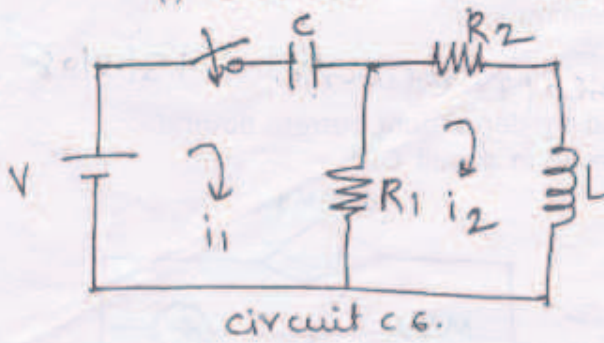 C
R2
V
i1
R1
i2
L
circuit c 6.